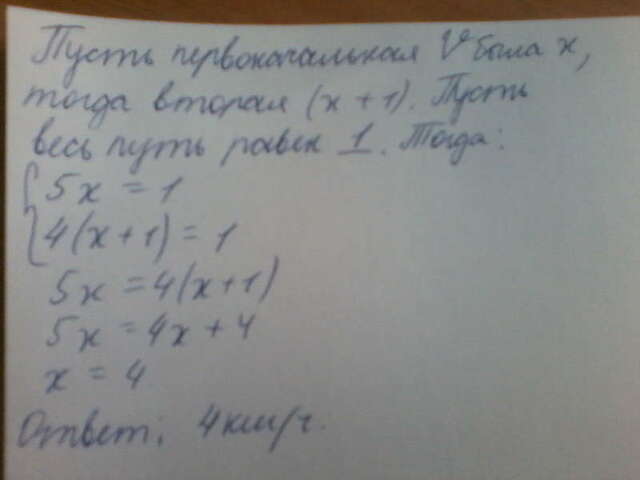 Пусть первоначальная V была x,
тогда вторая (x + 1). Пусть
весь путь равен 1. Тогда:
5x = 1
4(x + 1) = 1
5x = 4(x+1)
5x = 4x + 4
x = 4
Ответ: 4 км/ч.